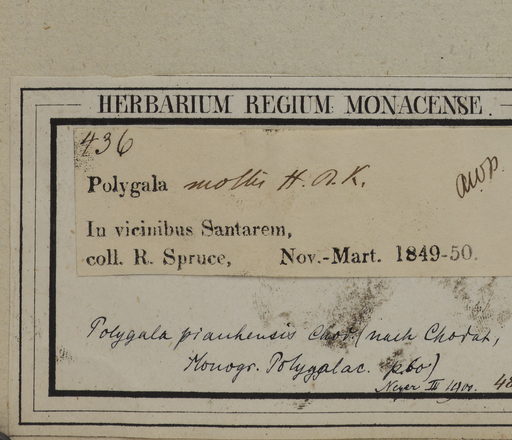 HERBARIUM REGIUM MONACENSE.
436
Polygala mollis H. B. K.
In vicinibus Santarem,
coll. R. Spruce, Nov.-Mart. 1849-50.
Polygala piauhensis Chod. (nach Chodat,
Monogr. Polygalac. p. 60)